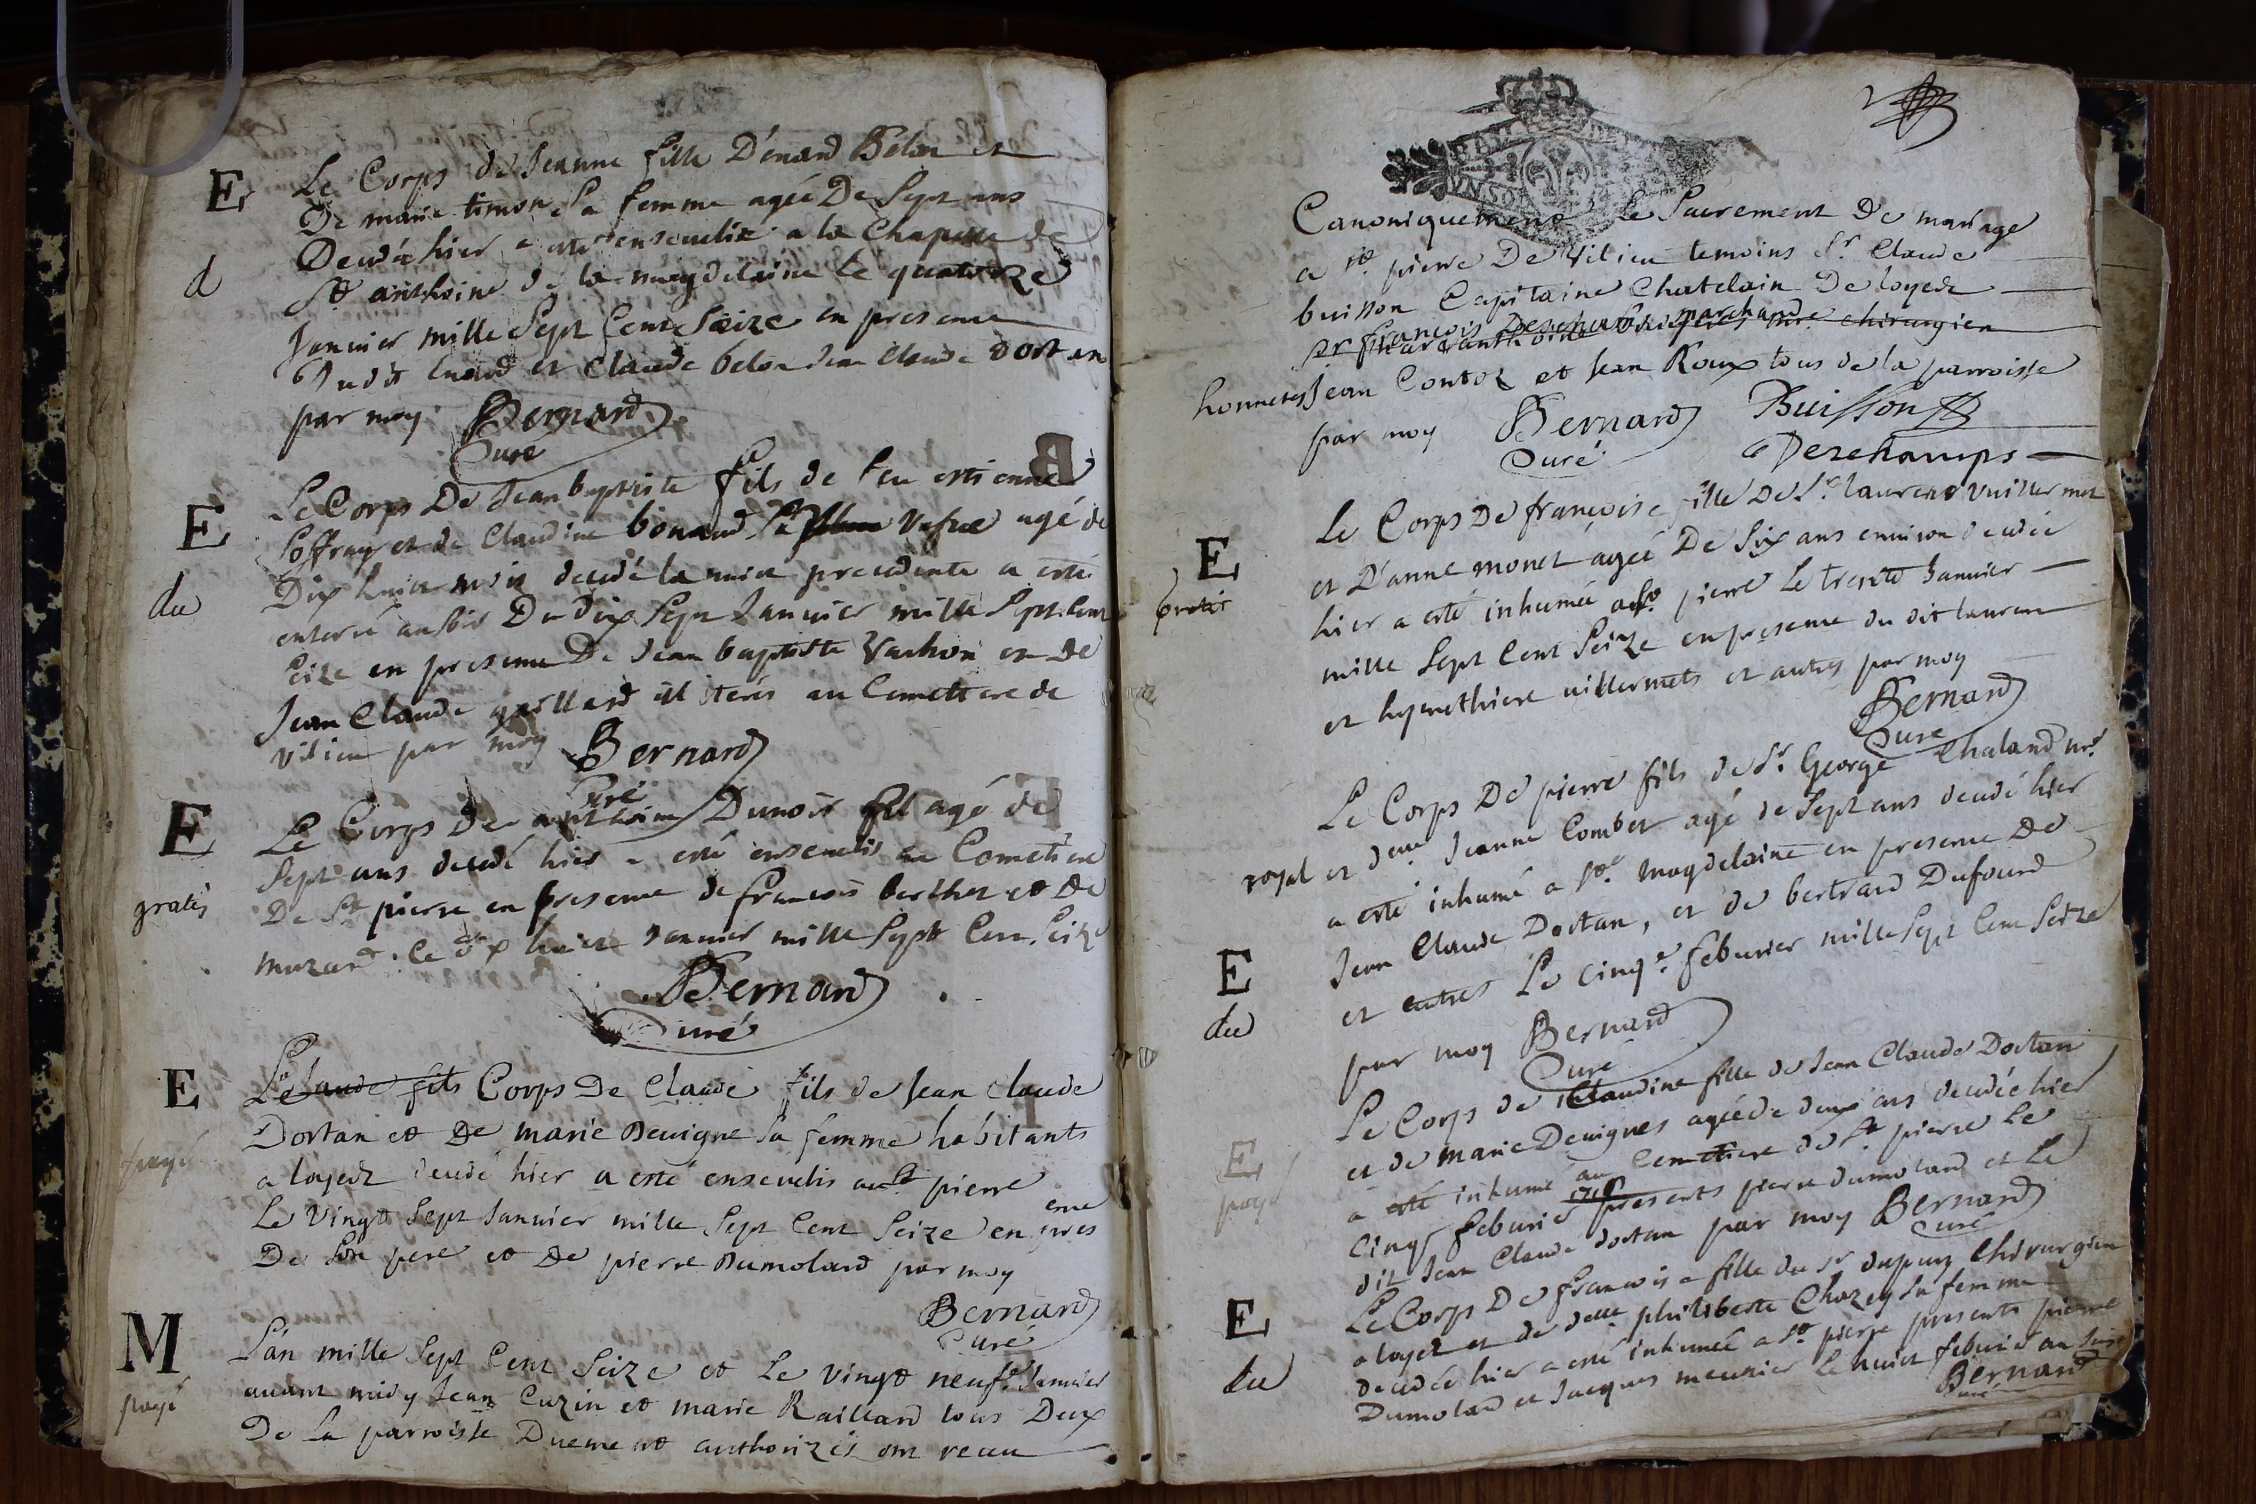 E Le Corps de Jeanne fille D'enard Belon et
De marie timon Sa femme agée De Sept ans
d Decedée hier a eté ensevelie a la Chapelle de
St anthoine de la magdelaine le quatorze
Janvier mille Sept Cent Seize en presence
dudit enard et Claude belon Jean Claude Dortan
par moy Bernard
Curé
E Le Corps De Jean baptiste fils de feu estienne
Soffray et de Claudine bonard Sa vefve agé de
du Dix huict mois decedé la nuict precedente a esté
enterré au soir Du dix Sept Janvier mille Sept Cent
Seize en presence De Jean baptiste Vachon et De
Jean Claude gaillard illiterés au Cemettere de
Vilieu par moy Bernard
Curé
E Le Corps De anthoine Dunoir agé de
Sept ans decedé hier a esté ensevelis au Cometiere
gratis De St pierre en presence de francois berthet et De
muzard. le dix huict Janvier mille Sept Cent Seize
Bernard
Curé
E Le Claude fils Corps De Claude fils de Jean Claude
Dortan et De marie Devigne Sa femme habitants
payé a loyedz decedé hier a esté ensevelis a St pierre
Le Vingt Sept Janvier mille Sept Cent Seize en presence
De Son pere et De pierre Dumolard par moy
Bernard
Curé
M L'an mille Sept Cent Seize et Le Vingt neufe Janvier
payé avant midy Jean Cuzin et marie Raillard tous Deux
De La parroisse Duement authorizés ont receu
Canoniquement Le Sacrement De mariage
a St pierre De Vilieu temoins Sr Claude
buisson Capitaine Chatelain De loyedz
Sr François Deschamps marchand mre chirurgien
honnetes Jean Contoz et Jean Roux tous de la parroisse
par moy Bernard Buisson
Curé Deschamps
E Le Corps De françoise fille De Sr laurent Vuillermet
et D'anne monet agée De Six ans environ decedée
gratis hier a esté inhumée a St pierre Le trente Janvier
mille Sept Cent Seize en presence du dit laurent
et hyputhiere uillermets et autres par moy
Bernard
Curé
Le Corps De pierre fils de Sr George Chaland nre
royal et delle Jeanne Combet agé de Sept ans decedé hier
a esté inhumé a Ste Magdelaine en presence De
E Jean Claude Dortan, et de bertrard Dufourd
du et autres Le cinqe. febvrier mille Sept Cent Seize
par moy Bernard
Curé
Le Corps de Claudine fille de Jean Claude Dortan
E et de marie Devignes agée de deux ans decedée hier
payé a esté inhumé au Cemetiere de St pierre Le
Cinq febvrier 1716 presents pierre dumolard et Le
dit Jean Claude dortan par moy Bernard
Curé
E Le Corps De francoise fille du Sr dupuy Chirurgien
a loyedz et de delle philiberte Chazey Sa femme
du decedée hier a esté inhumée a St pierre presents pierre
Dumolard et Jacques meunier le huict febvrié an Seize
Bernard
Curé